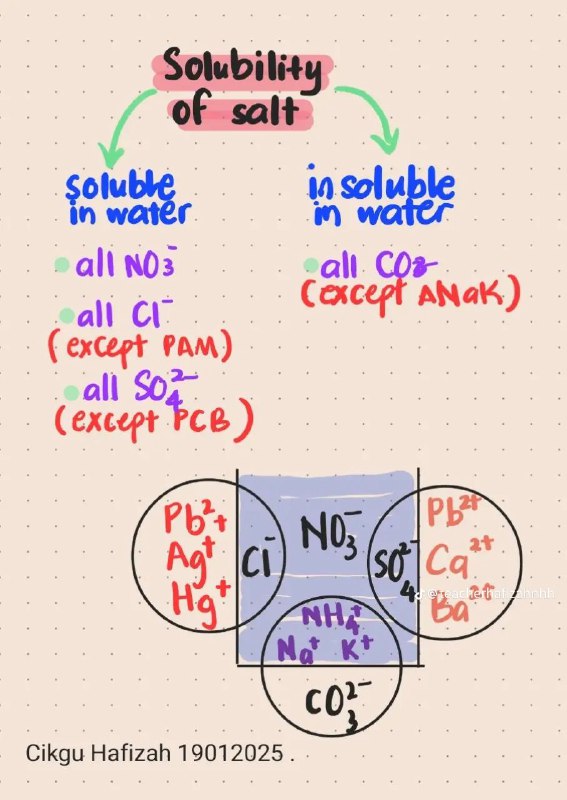 Solubility
of salt
soluble
in water
all NO₃⁻
all Cl⁻
(except PAM)
all SO₄²⁻
(except PCB)
insoluble
in water
all CO₃²⁻
(except ANaK)
Pb²⁺
Ag⁺
Hg⁺
Cl⁻
NO₃⁻
SO₄²⁻
Pb²⁺
Ca²⁺
Ba²⁺
@teacherhafizahphh
NH₄⁺
Na⁺ K⁺
CO₃²⁻
Cikgu Hafizah 19012025 .